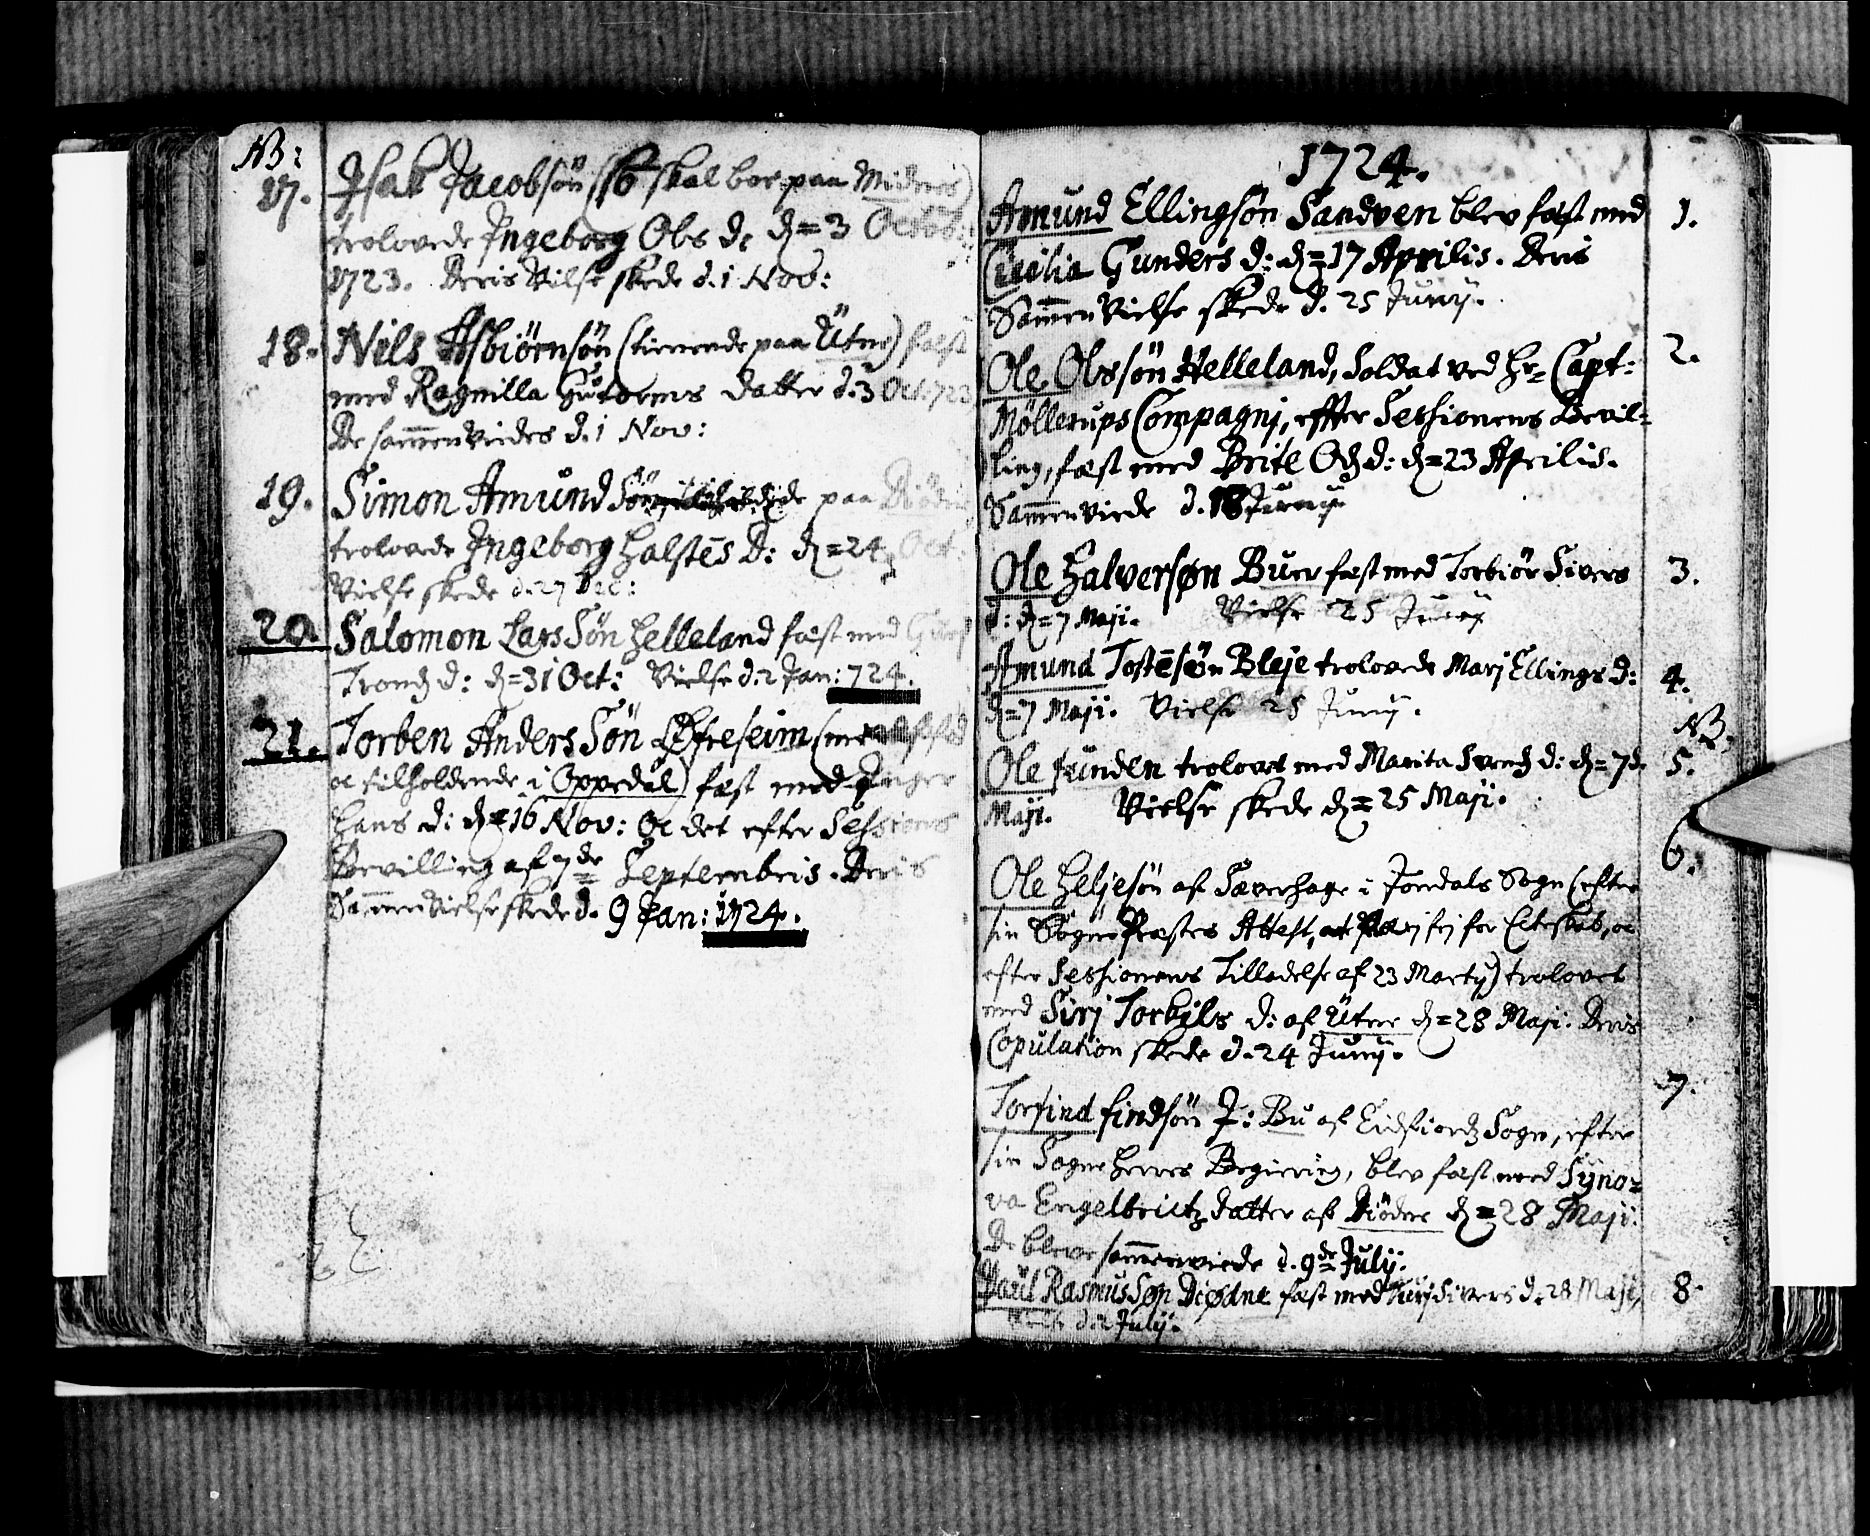 NB:
17. Isak Jacobsön (so skal boe paa
trolovede Ingeborg Ols d: d = 3 Octob:
1723. Deris Vielse skede d. 1 Nov:
18. Nils Asbiörnsön (tienende paa Ütne) fæst
med Ragnilla Guttorms datter d. 3 Oct. 723
De sammenviedes d. 1 Nov:
19. Simon Amund Sön paa
trolovede Ingeborg Halstēs D: d = 24 Oct:
Vielse skede d. 27 Dec:
20. Salomon Lars Sön Helleland fæst med
Trond d: d = 31 Oct: Vielse d. 2 Jan: 724.
21. Torben Anders Sön
oc tilholdende i Oppedal) fæst med Inger
Hans d: d = 16 Nov: Oc det efter Sessions
Bevilling af 7de Septembris. Deris
Sam̄en Vielse skede d. 9 Jan: 1724.
1724.
Amund Ellingsön Sandven blev fæst med 1.
Cicilia Gunders d: d = 17 Aprilis. Deris
Sam̄en Vielse skede d. 25 Junij.
Ole Olssön Helleland, Soldat ved Hr. Capt: 2.
Möllerups Compagni, effter Sessionens Bevil=
ling, fæst med Brite Od d: d = 23 Aprilis.
Sam̄enviede d. 18 Junij.
Ole Halversøn Buer fæst med Torbiör Sivers 3.
d: d = 7 Maji. Vielse 25 Junij
Amund Tostēsön Bleje trolovede Marj Ellings d: 4.
d = 7 Maji. Vielse 25 Junij.
NB.
Ole funden trolovet med Marita Svend d: d = 7de 5.
Maji. Vielse skede d = 25 Maji.
6.
Ole Heljesön af Sæverhage i Jondals Sogn (efter
sin Sogne Præstes Attest, at være frj for Ekteskab, oc
efter Sessionens Tilladelse af 23 Martij) trolovet
med Sirj Torkjls d: af Ütne d = 28 Maji. Deris
Copulation skede d. 24 Junij.
7.
Torfind findsön J: Bu af Eidfiord Sogn, efter
sin Sogne Herres Begiering, blev fæst med Syno=
va Engelbrictz datter af Diödne d = 28 Maji.
De bleve sam̄enviede d. 9de Julij.
Paül Rasmus Søn Diødne fæst med Turj Sivers d. 28 Maji, 8.
Vielse d. 2 Julij.